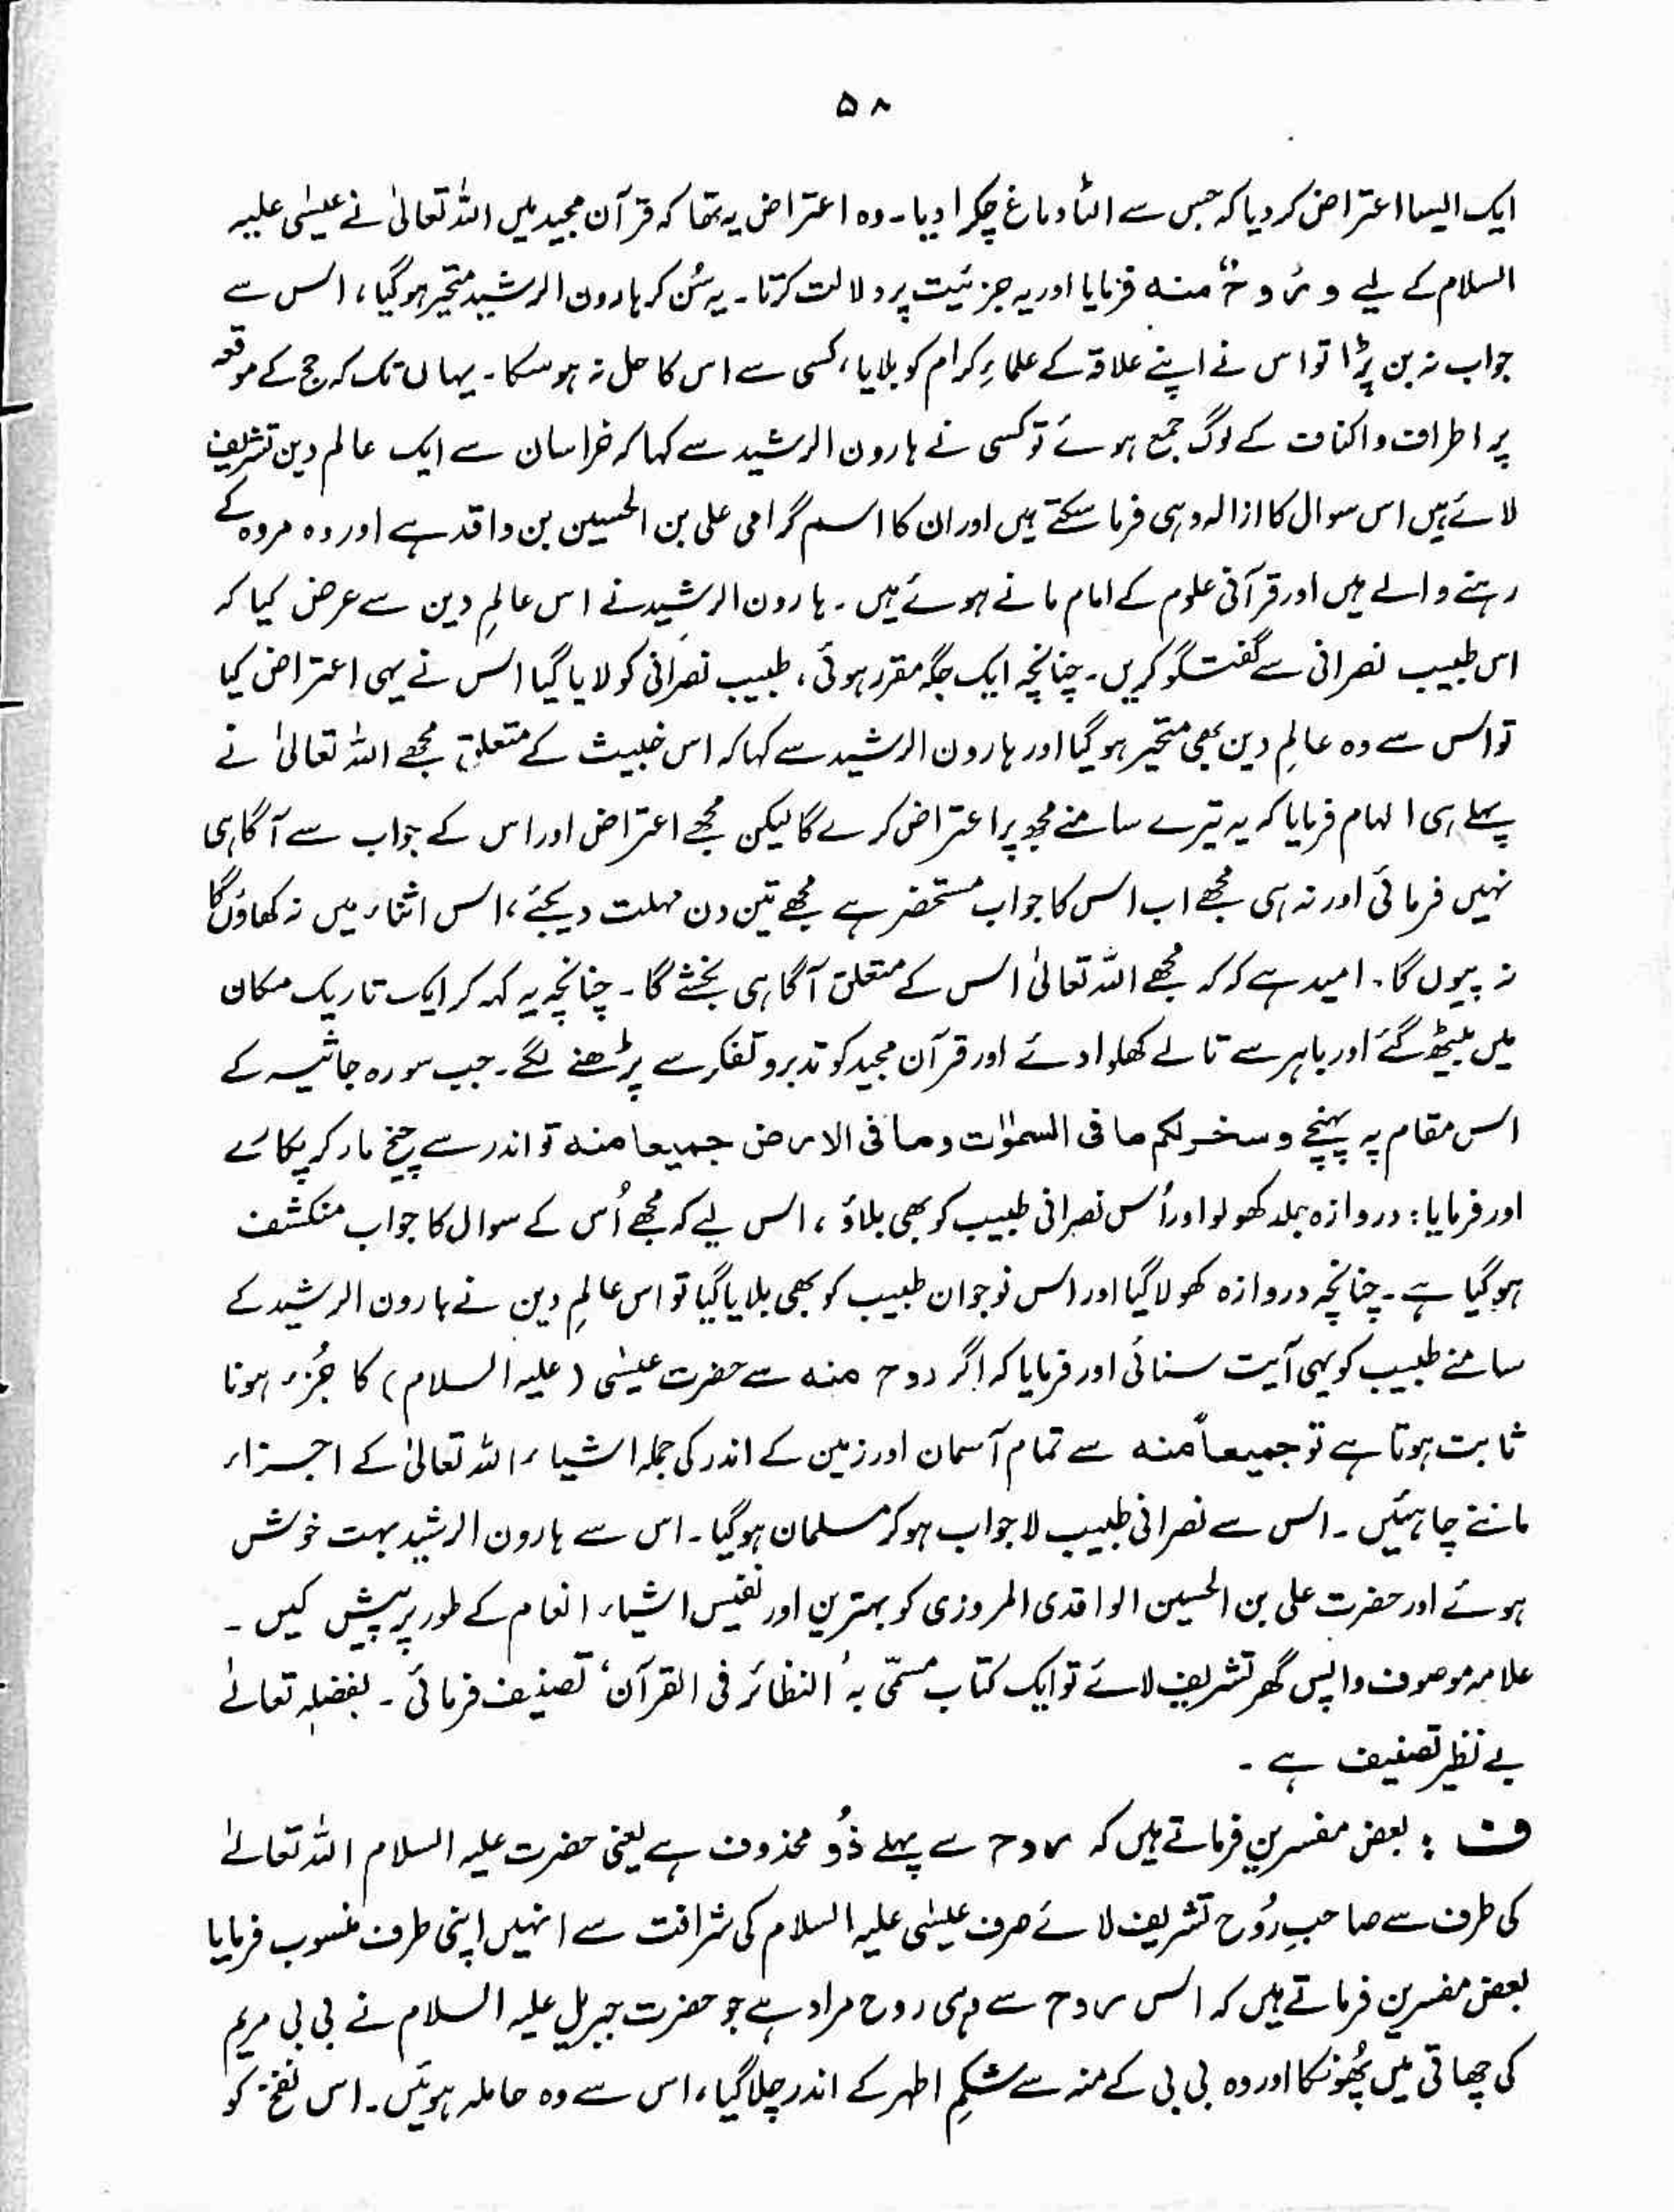 ۵۸
ایک ایسا اعتراض کر دیا کہ جس سے الٹا دماغ چکرا دیا۔ وہ اعتراض یہ تھا کہ قرآن مجید میں اللہ تعالیٰ نے عیسٰی علیہ
السلام کے لیے و رُوحٌ منہ فرمایا اور یہ جزئیت پر دلالت کرتا۔ یہ سُن کر ہارون الرشید متحیر ہوگیا، اس سے
جواب نہ بن پڑا تو اس نے اپنے علاقہ کے علماءِ کرام کو بلایا، کسی سے اس کا حل نہ ہو سکا۔ یہاں تک کہ حج کے موقعہ
پر اطراف و اکناف کے لوگ جمع ہوئے تو کسی نے ہارون الرشید سے کہا کہ خراسان سے ایک عالم دین تشریف
لائے ہیں اس سوال کا ازالہ وہی فرما سکتے ہیں اور ان کا اسم گرامی علی بن الحسین بن واقد ہے اور وہ مروہ کے
رہنے والے ہیں اور قرآنی علوم کے امام مانے ہوئے ہیں۔ ہارون الرشید نے اس عالمِ دین سے عرض کیا کہ
اس طبیب نصرانی سے گفتگو کریں۔ چنانچہ ایک جگہ مقرر ہوئی، طبیب نصرانی کو لایا گیا اس نے یہی اعتراض کیا
تو اس سے وہ عالمِ دین بھی متحیر ہوگیا اور ہارون الرشید سے کہا کہ اس خبیث کے متعلق مجھے اللہ تعالیٰ نے
پہلے ہی الہام فرمایا کہ یہ تیرے سامنے مجھ پر اعتراض کرے گا لیکن مجھے اعتراض اور اس کے جواب سے آگاہی
نہیں فرمائی اور نہ ہی مجھے اب اس کا جواب مستحضر ہے مجھے تین دن مہلت دیجئے، اس اثناء میں نہ کھاؤں گا
نہ پیوں گا۔ امید ہے کہ کہ مجھے اللہ تعالیٰ اس کے متعلق آگاہی بخشے گا۔ چنانچہ یہ کہہ کر ایک تاریک مکان
میں بیٹھ گئے اور باہر سے تالے کھلوا دئے اور قرآن مجید کو تدبر و تفکر سے پڑھنے لگے۔ جب سورہ جاثیہ کے
اس مقام پہ پہنچے و سخر لکم ما فی السمٰوٰت وما فی الارض جمیعا منہ تو اندر سے چیخ مار کر پکارے
اور فرمایا: دروازہ جلد کھولو اور اُس نصرانی طبیب کو بھی بلاؤ، اس لیے کہ مجھے اُس کے سوال کا جواب منکشف
ہوگیا ہے۔ چنانچہ دروازہ کھولا گیا اور اس نوجوان طبیب کو بھی بلایا گیا تو اس عالمِ دین نے ہارون الرشید کے
سامنے طبیب کو یہی آیت سنائی اور فرمایا کہ اگر روح منہ سے حضرت عیسٰی (علیہ السلام) کا جُزء ہونا
ثابت ہوتا ہے تو جمیعاً منہ سے تمام آسمان اور زمین کے اندر کی جملہ اشیاء اللہ تعالیٰ کے اجزاء
ماننے چاہئیں۔ اس سے نصرانی طبیب لاجواب ہو کر مسلمان ہوگیا۔ اس سے ہارون الرشید بہت خوش
ہوئے اور حضرت علی بن الحسین الواقدی المروزی کو بہترین اور نفیس اشیاء انعام کے طور پر پیش کیں۔
علامہ موصوف واپس گھر تشریف لائے تو ایک کتاب مسمّٰی بہ ’النظائر فی القرآن‘ تصنیف فرمائی۔ بفضلہٖ تعالےٰ
بے نظیر تصنیف ہے۔
ف : بعض مفسرین فرماتے ہیں کہ روح سے پہلے ذُو محذوف ہے یعنی حضرت علیہ السلام اللہ تعالےٰ
کی طرف سے صاحبِ رُوح تشریف لائے صرف عیسٰی علیہ السلام کی شرافت سے انہیں اپنی طرف منسوب فرمایا
بعض مفسرین فرماتے ہیں کہ اس روح سے وہی روح مراد ہے جو حضرت جبریل علیہ السلام نے بی بی مریم
کی چھاتی میں پھُونکا اور وہ بی بی کے منہ سے شکمِ اطہر کے اندر چلا گیا، اس سے وہ حاملہ ہوئیں۔ اس نفخہ کو